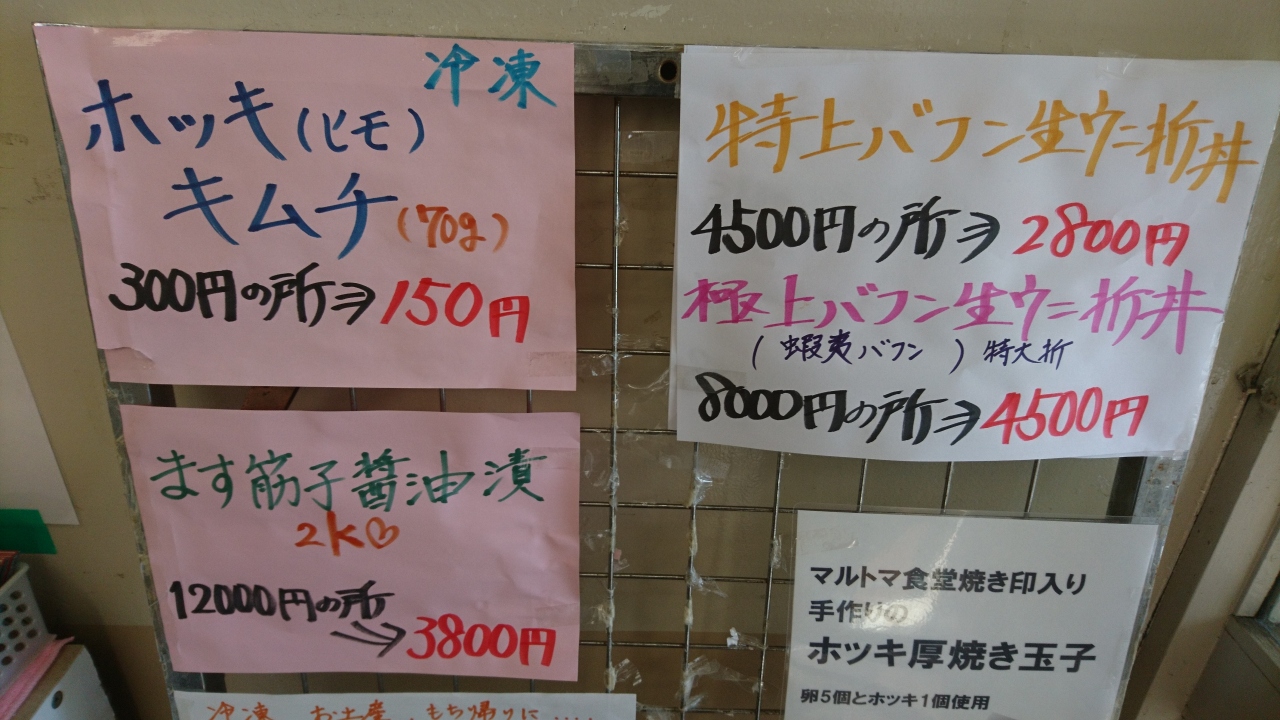 冷凍
ホッキ(ヒモ)
キムチ(70g)
300円の所⇒150円
ます筋子醤油漬
2k♡
12000円の所
→3800円
冷凍 お土産、もち帰りに....
特上バフン生ウニ折丼
4500円の所⇒2800円
極上バフン生ウニ折丼
(蝦夷バフン)特大折
8000円の所⇒4500円
マルトマ食堂焼き印入り
手作りの
ホッキ厚焼き玉子
卵5個とホッキ1個使用